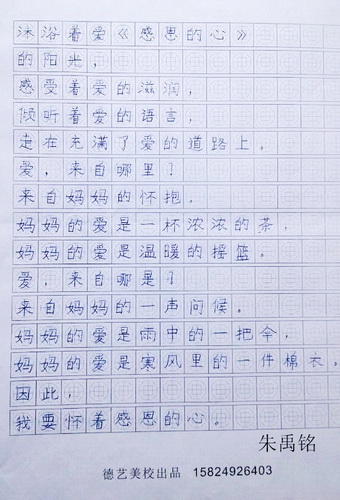 沐浴着爱《感恩的心》
的阳光，
感受着爱的滋润，
倾听着爱的语言，
走在充满了爱的道路上，
爱，来自哪里？
来自妈妈的怀抱。
妈妈的爱是一杯浓浓的茶，
妈妈的爱是温暖的摇篮。
爱，来自哪是？
来自妈妈的一声问候。
妈妈的爱是雨中的一把伞，
妈妈的爱是寒风里的一件棉衣，
因此，
我要怀着感恩的心。
朱禹铭
德艺美校出品 15824926403